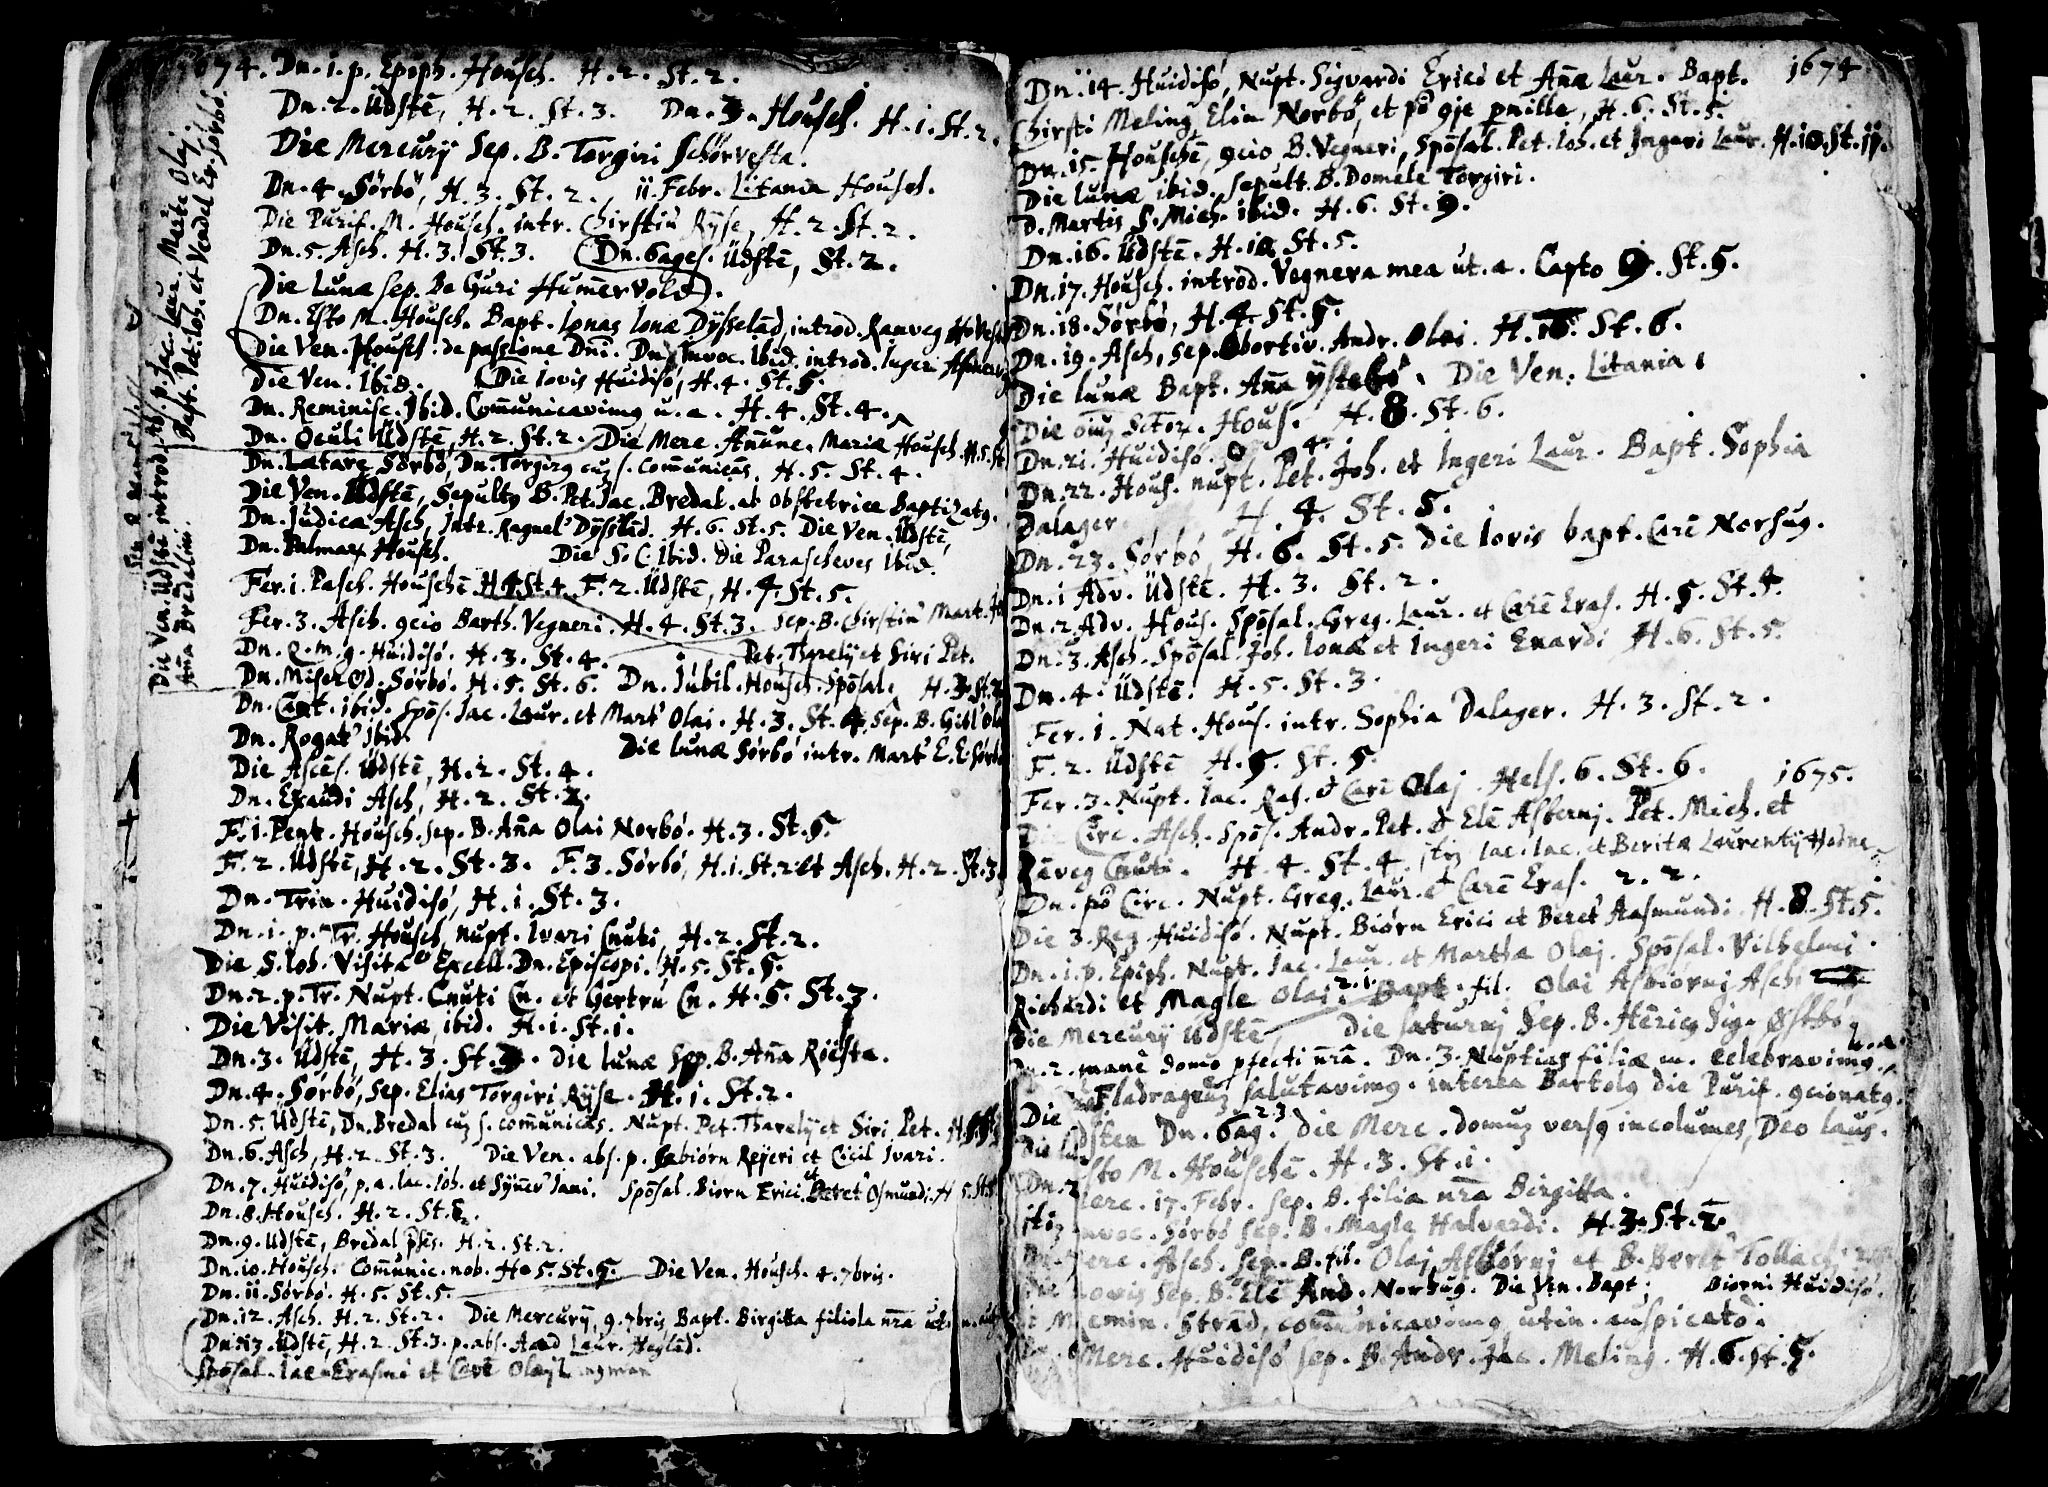 1674. Dn. 1. p. Epiph. Housch. H. 2. St. 2.
Dn. 2. Üdstē, H. 2. St. 3. Dn. 3. Housch. H. 1. St. 2.
Die Mercurij Sep. B. Torgiri Schörvesta.
Dn. 4. Sörbö, H. 3. St. 2. 11. Febr. Litania Housch.
Die Purif. M. Housch. intr. Chirstin Ryse, H. 2. St. 2.
Dn. 5. Asch. H. 3. St. 3. Dn. 6ages. Üdstē, St. 2.
Die Lunæ sep. Be Guri Hum̄ervold.
Dn. Esto M. Housch. Bapt. Ionas Ionæ Dysselād, introd. Ranveg
Die Ven. Housch. de passione Dnī. Dn. Invoc. Ibid. introd. Inger
Die Ven. Ibid. Die Iovis Huidisö, H. 4. St. 5.
Dn. Reminisc. Ibid. Com̄unicavimq u. a. H. 4. St. 4.
Dn. Oculi Üdstē, H. 2. St. 2. Die Merc. An̄unc. Mariæ Housch. H. 5. St
Dn. Lætare Sörbö, Dn. Torgirq cuz s. com̄unicās. H. 5. St. 4.
Die Ven. Üdstē, Sepultq B. Pet. Jac. Bredal. ab obstetrice Baptizatq.
Dn. Judica Asch, Intr. Ragnel Dysslād. H. 6. St. 5. Die Ven. Üdstē,
Dn. Palmar Housch. Die S. C. Ibid. Die Parascheves Ibid.
Fer. 1. Pasch. Houschē H. 4. St. 4. F. 2. Üdstē, H. 4. St. 5.
Fer. 3. Asch. qcio Barth. Vegneri. H. 4. St. 3. Sep. B. Chirstin Mart.
Dn. Q. m. g. Huidisö. H. 3. St. 4. Pet. Tharelij et Siri Pet.
Dn. Miser Dd. Sörbö. H. 5. St. 6. Dn. Jubil. Housch. Spōsal. H. 3. St.
Dn. Cant. ibid. Spōs. Jac. Laur. et Mart Olai. H. 3. St. 4. Sep. B.
Dn. Rogat Ibid. Die lunæ Sörbö intr. Mart E. E. Sörb
Die Ascēs. Üdstē, H. 2. St. 4.
Dn. Exaudi Asch, H. 2. St. 2.
F. 1. Pent. Housch. Sep. B. An̄a Olai Norbö. H. 3. St. 5.
F. 2. Üdstē, H. 2. St. 3. F. 3. Sörbö, H. 1. St. 2 et Asch. H. 2. St. 3
Dn. Trin. Huidisö, H. 1. St. 3.
Dn. 1. p. Tr. Housch, nupt. Ivari Cnuti, H. 2. St. 2.
Die S. Ioh. Visita Excell. Dn. Episcopi. H. 5. St. 5.
Dn. 2. p. Tr. Nupt. Cnuti Cn. et Gertrū Cn. H. 5. St. 3.
Die Visit. Mariæ ibid. H. 1. St. 1.
Dn. 3. Üdstē, H. 3. St. 3. die lunæ Sep. B. An̄a Röësta.
Dn. 4. Sörbö, Sep. Elias Torgiri Ryse. H. 1. St. 2.
Dn. 5. Üdstē, Dn. Bredal cuz s. com̄unicās. Nupt. Pet. Tharelij et Siri Pet.
Dn. 6. Asch, H. 2. St. 3. Die Ven. abs. p. Asbiörn Reijeri et Cicil Ivari.
Dn. 7. Huidisö, p. a. Iac. Ioh. et Synner Iani. Spōsal. Biorn Erici et Beret Osmundi. H. 5. St.
Dn. 8. Housch. H. 2. St.
Dn. 9. Üdstē, Bredal p̄ēs. H. 2. St. 2.
Dn. 10. Housch. Com̄unic. nob. H. 5. St. 5. Die Ven. Housch. 4. 7bris.
Dn. 11. Sörbö. H. 5. St. 5.
Dn. 12. Asch. H. 2. St. 2. Die Mercurij, 9. 7bris, Bapt. Birgitta filiola nr̄a
Dn. 13. Üdstē, H. 2. St. 3. p. abs. Aand Laur. Heglād.
Spōsal. Iac. Erasmi et Carē Olaj
Die Ven. Üdstē introd. Ab. p. Jac. Laur. Marte Olaj
Bapt. Pet. Ioh. et Vendel Er. Sörbö.
An̄a Bredelni.
Dn. 14. Huidisö, Nupt. Sigvardi Erici et An̄æ Laur. Bapt. 1674
Chirsti Meling Elin Norbö, et pō qje pnille, H. 6. St. 5.
Dn. 15. Houschē, qcio B. Vegneri, Spōsal. Pet. Ioh. et Ingeri Laur. H. 10. St. 11.
Die lunæ ibid. sepult. B. Domele Torgiri.
D. Martis S. Mich. ibid. H. 6. St. 9.
Dn. 16. Üdstē. H. 10. St. 5.
Dn. 17. Housch. introd. Vegnera mea ut. a. Capto St. 5.
Dn. 18. Sörbö, H. 4. St. 5.
Dn. 19. Asch, sep. abortiv. Andr. Olai. H. St. 6.
Die lunæ Bapt. An̄a Ystebö. Die Ven. Litania.
Die ōm̄ Sctor. Hous. H. 8. St. 6.
Dn. 21. Huidisö. 4.
Dn. 22. Hous. nupt. Pet. Joh. et Ingeri Laur. Bapt. Sophia
Dalager H. 4. St. 5.
Dn. 23. Sörbö, H. 6. St. 5. Die Iovis bapt. Carē Norhug.
Dn. 1 Adv. Üdstē. H. 3. St. 2.
Dn. 2. Adv. Hous. Spōsal. Greg. Laur. et Carē Eras. H. 5. St. 4.
Dn. 3. Asch. Spōsal. Joh. Ionæ et Ingeri Evardi H. 6. St. 5.
Dn. 4. Üdstē. H. 5. St. 3.
Fer. 1. Nat. Hous. intr. Sophia Dalager. H. 3. St. 2.
F. 2. Üdstē H. 5. St. 5.
Fer. 3. Nupt. Iac. Ras. & Carē Olaj. Hels. 6. St. 6. 1675.
Die Circ. Asch. Spōs. Andr. Pet. & Elē Asbernj. Pet. Mich. et
Rāveg Cnuti. H. 4. St. 4. Iac. Iac. et Beritæ Laurentij
Dn. pō Circ. Nupt. Greg. Laur. et Carē Eras. 2. 2.
Die 3. Reg. Huidisö. Nupt. Biörn Erici et Beret Aasmundi. H. 8. St. 5.
Dn. 1. p. Epiph. Nupt. Iac. Laur. et Martha Olaj. Spōsal. Vilhelmi
Richardi et Magle Olai. 2. 1. Bapt. fil. Olai Asbiörnj Asch
Die Mercurij Üdstē, Die saturnj Sep. B. Hēricq Sig. Østbö.
Dn. 2. manē domo pfecti nr̄ā. Dn. 3. Nuptias filiæ m. celebravimq.
Die Fladraguz salutavimq. interea Bartolq die Purif. qcionatq.
Üdsten Dn. 6ag. 23. die Merc. domuz versq incolumes, Deo laus.
Esto M. Houschē. H. 3. St. 1.
Merc. 17. Febr. sep. B. filia nr̄a Birgitta.
Invoc. Sörbö sep. B. Magle Halvardi. H. 3. St. 2.
Merc. Asch. Sep. B. fil. Olaj Asbörnj et B. Beret Tollach
Die Iovis Sep. B. Elē And. Norhug. Die Ven. Bapt; Biorni Huidisö.
Remin. Strād, com̄unicavimq utin. auspicato.
Merc. Huidisö sep. B. Andr. Jac. Meling. H. 6. St. 5.